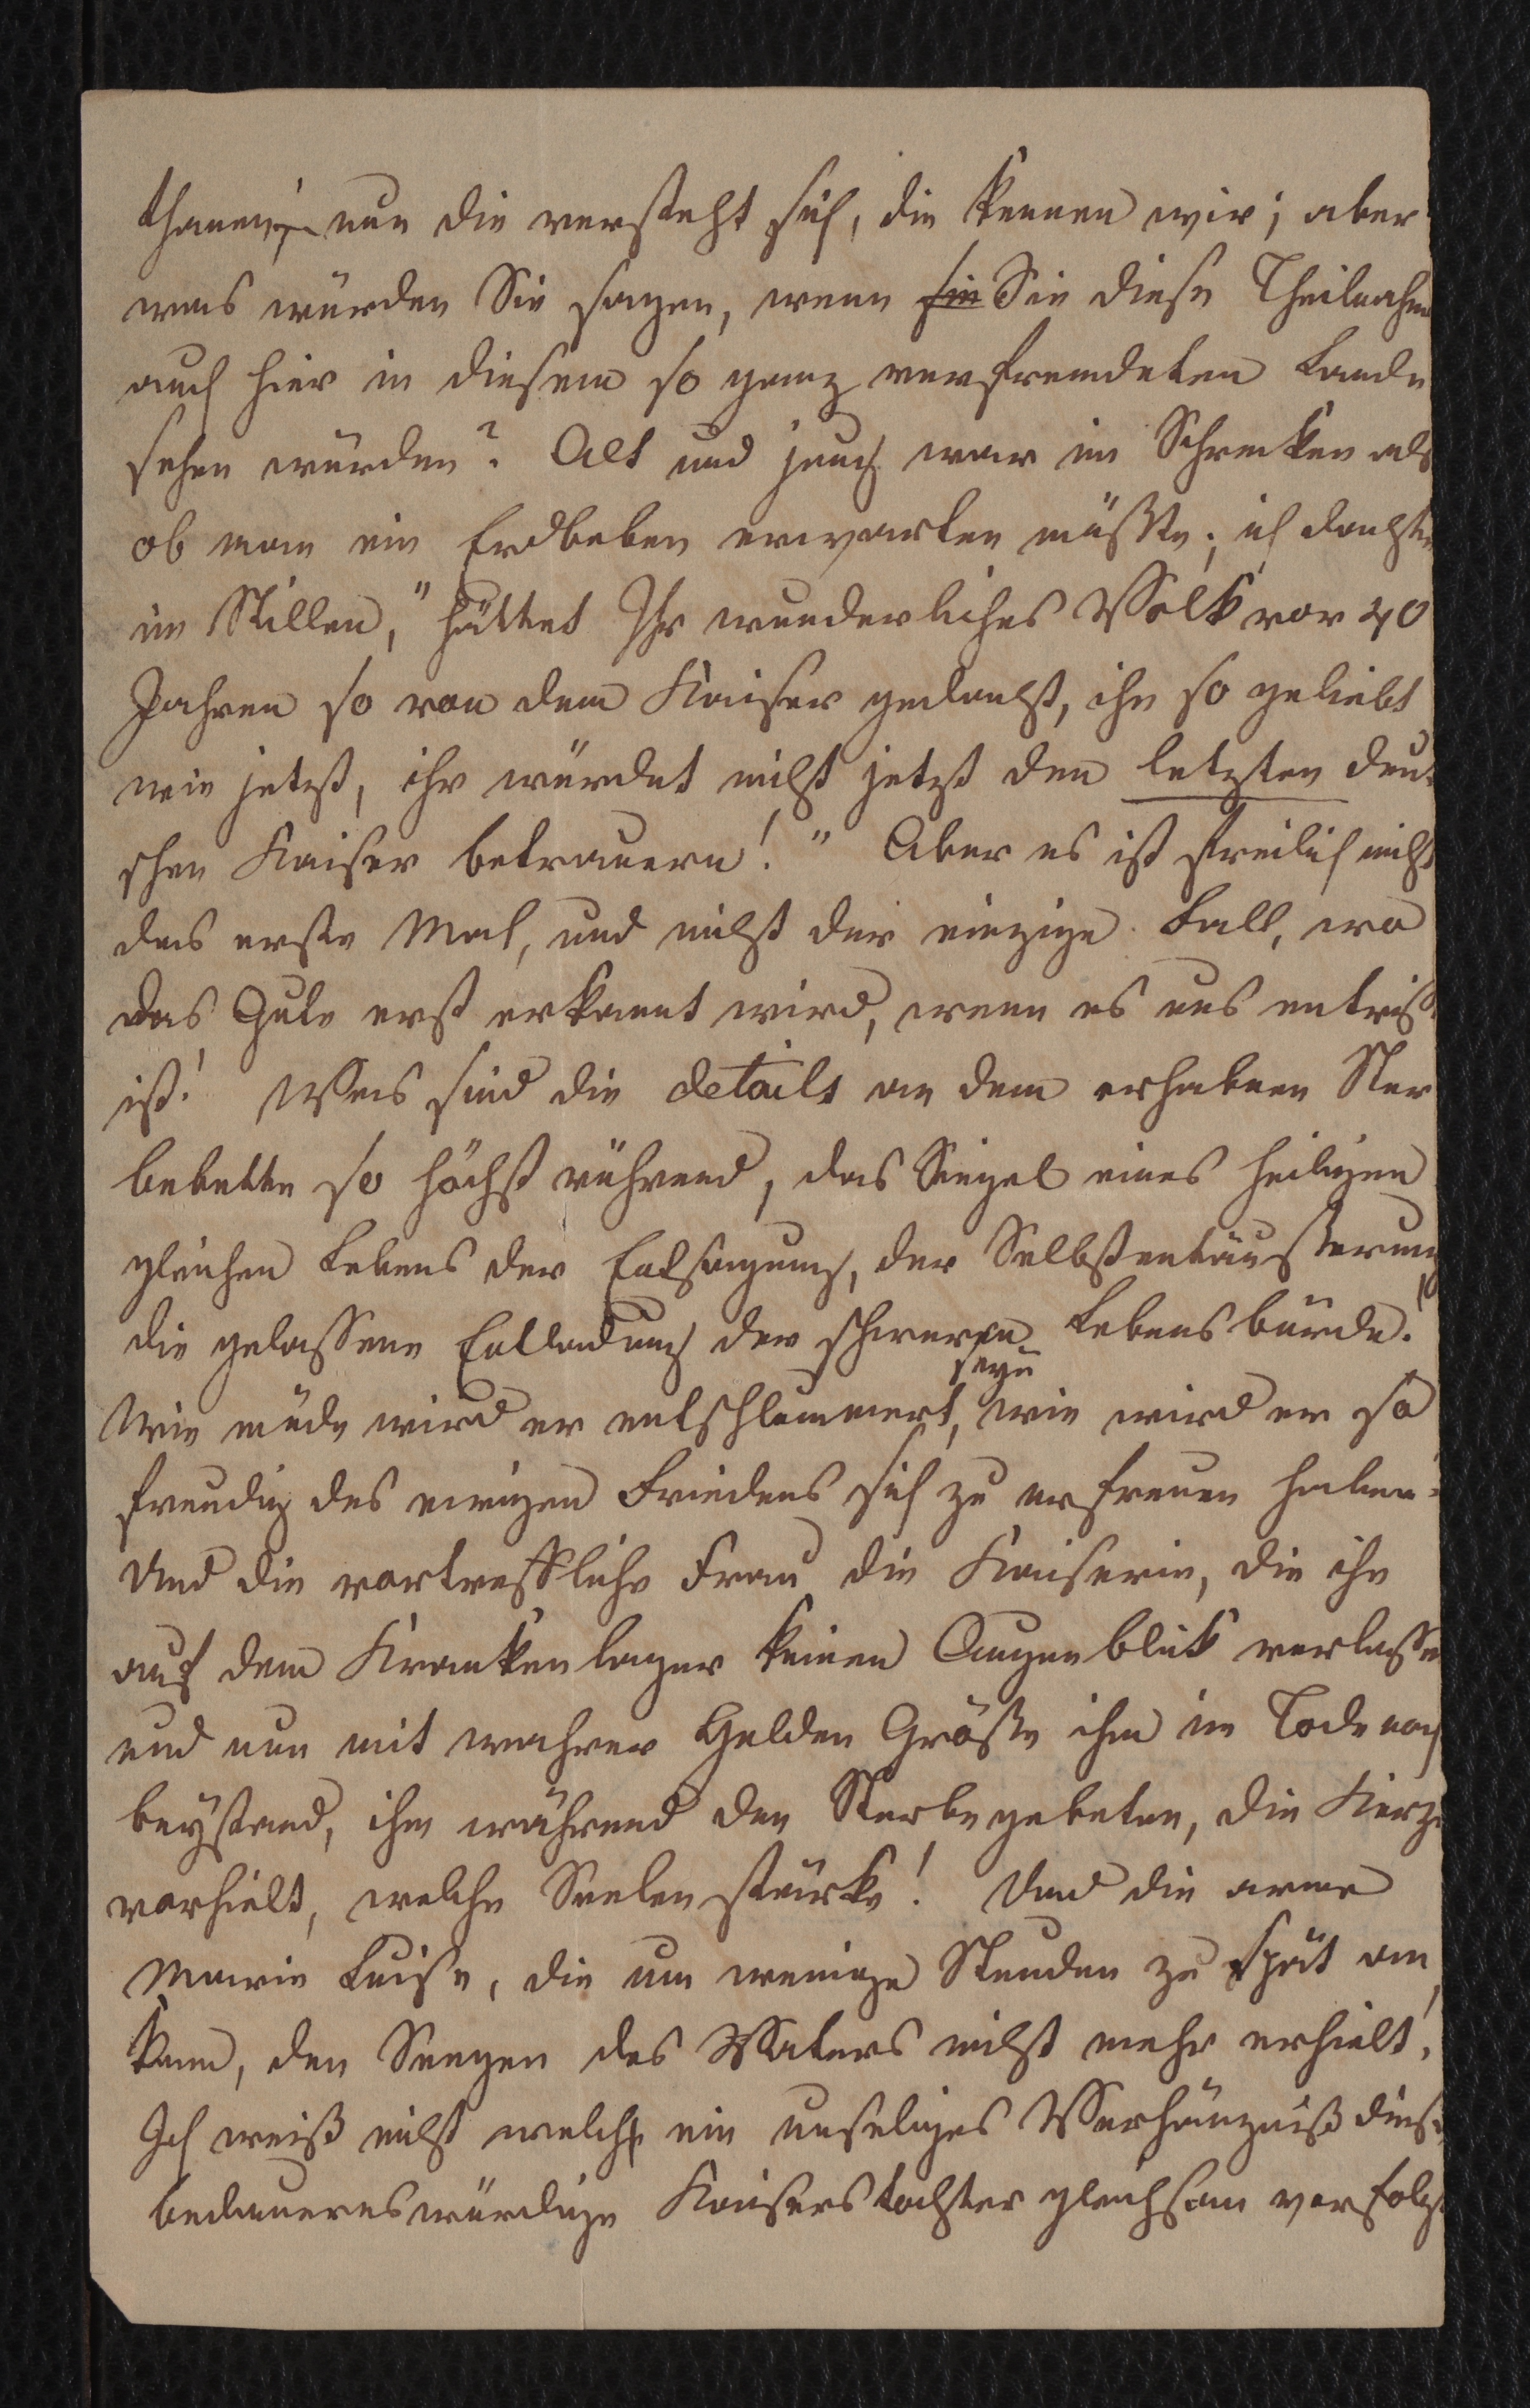 thanen, nun die versteht sich, die kennen wir; aber
was würden Sie sagen, wenn sie Sie diese Theilnahm
auch hier in diesem so ganz verfremdeten Lande
sehen würden? Alt und jung war im Schrecken als
ob man ein Erdbeben erwarten müßte; ich dachte
im Stillen, "hättet Ihr wunderliches Volk vor 40
Jahren so von dem Kaiser gedacht, ihn so geliebt
wie jetzt, ihr würdet nicht jetzt den letzten deut
schen Kaiser betrauern!" Aber es ist freilich nicht
das erste Mal, und nicht der einzige Fall, wo
das Gute erst erkannt wird, wenn es uns entriss
ist! Was sind die details an dem erhabnen Ster
bebette so höchst rührend, das Siegel eines heiligen
gleichen Lebens der Entsagung, der Selbstentäußerung
die gelassene Entladung der schweren Lebensbürde!
seyn
Wie müde wird er entschlummert, wie wird er so
freudig des ewigen Friedens sich zu erfreuen haben!
Und die vortreffliche Frau die Kaiserin, die ihn
auf dem Krankenlager keinen Augenblick verlasse
und nun mit wahrer Helden Größe ihm im Tode noch
beystand, ihm während den Sterbegebeten, die Kerze
vorhielt, welche Seelenstärke! Und die arme
Marie Luise, die um wenige Stunden zu spät an
kam, den Seegen des Vaters nicht mehr erhielt!
Ich weiß nicht welch ein unseliges Verhängniß diese
bedauernswürdige Kaiserstochter gleichsam verfolgt